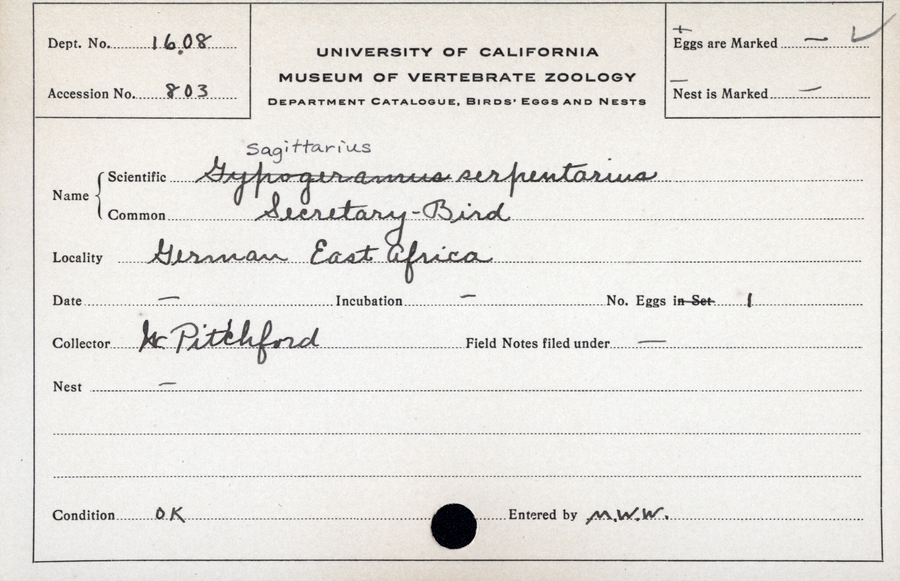 Dept. No. 1608
Accession No. 803
UNIVERSITY OF CALIFORNIA
MUSEUM OF VERTEBRATE ZOOLOGY
DEPARTMENT CATALOGUE, BIRDS' EGGS AND NESTS
+
Eggs are Marked — ✓
—
Nest is Marked —
Sagittarius
Name { Scientific Gypogeranus serpentarius
Common Secretary-Bird
Locality German East Africa
Date — Incubation — No. Eggs in Set 1
Collector W Pitchford Field Notes filed under —
Nest —
Condition OK Entered by M.W.W.